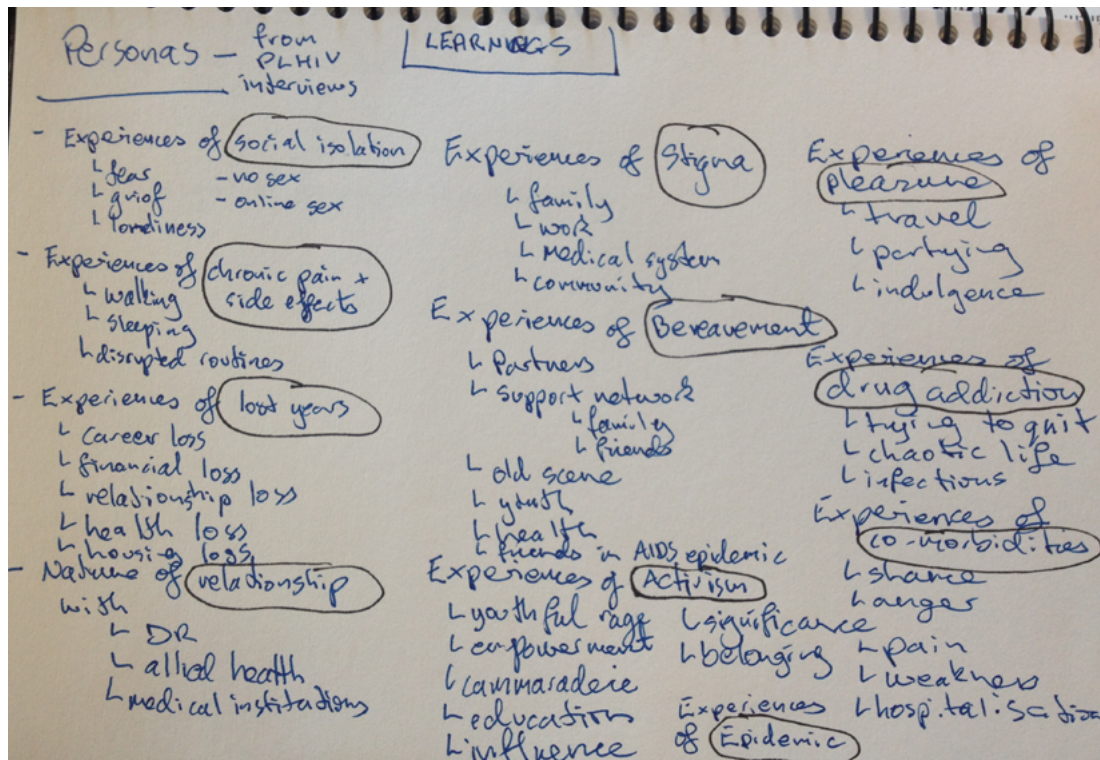 Personas - from
PLHIV
interviews
LEARNINGS
- Experiences of social isolation
└ fear - no sex
└ grief - online sex
└ loneliness
- Experiences of chronic pain +
side effects
└ walking
└ sleeping
└ disrupted routines
- Experiences of lost years
└ career loss
└ financial loss
└ relationship loss
└ health loss
└ housing loss
- Nature of relationship
with
└ DR
└ allied health
└ medical institutions
Experiences of Stigma
└ family
└ work
└ medical system
└ community
Experiences of Bereavement
└ Partners
└ support network
└ family
└ friends
└ old scene
└ youth
└ health
└ friends in AIDS epidemic
Experiences of Activism
└ youthful rage └ significance
└ empowerment └ belonging
└ cammaraderie
└ education
└ influence
Experiences
of Epidemic
Experiences of
pleasure
└ travel
└ partying
└ indulgence
Experiences of
drug addiction
└ trying to quit
└ chaotic life
└ infections
Experiences of
co-morbidities
└ shame
└ anger
└ pain
└ weakness
└ hospitalisation